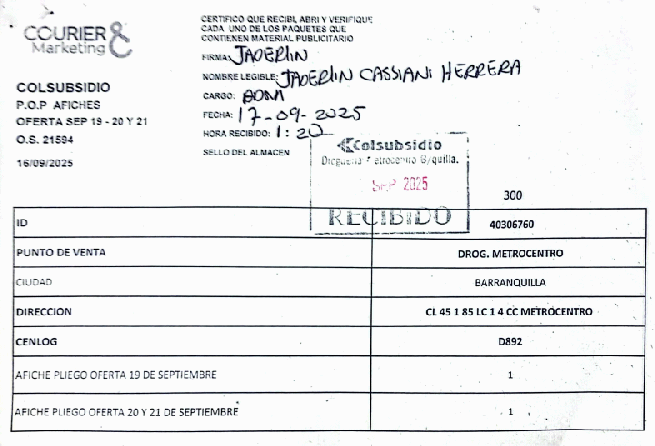 COURIER &
Marketing
COLSUBSIDIO
P.O.P AFICHES
OFERTA SEP 19 - 20 Y 21
O.S. 21594
16/09/2025
CERTIFICO QUE RECIBI, ABRI Y VERIFIQUE
CADA UNO DE LOS PAQUETES QUE
CONTIENEN MATERIAL PUBLICITARIO
FIRMA: JADERLIN
NOMBRE LEGIBLE: JADERLIN CASSIANI HERRERA
CARGO:
FECHA: 17-09-2025
HORA RECIBIDO: 1:20
SELLO DEL ALMACEN
Colsubsidio
Drogueria Metrocentro B/quilla.
SEP 2025
RECIBIDO
300
ID 40306760
PUNTO DE VENTA DROG. METROCENTRO
CIUDAD BARRANQUILLA
DIRECCION CL 45 1 85 LC 1 4 CC METROCENTRO
CENLOG D892
AFICHE PLIEGO OFERTA 19 DE SEPTIEMBRE 1
AFICHE PLIEGO OFERTA 20 Y 21 DE SEPTIEMBRE 1